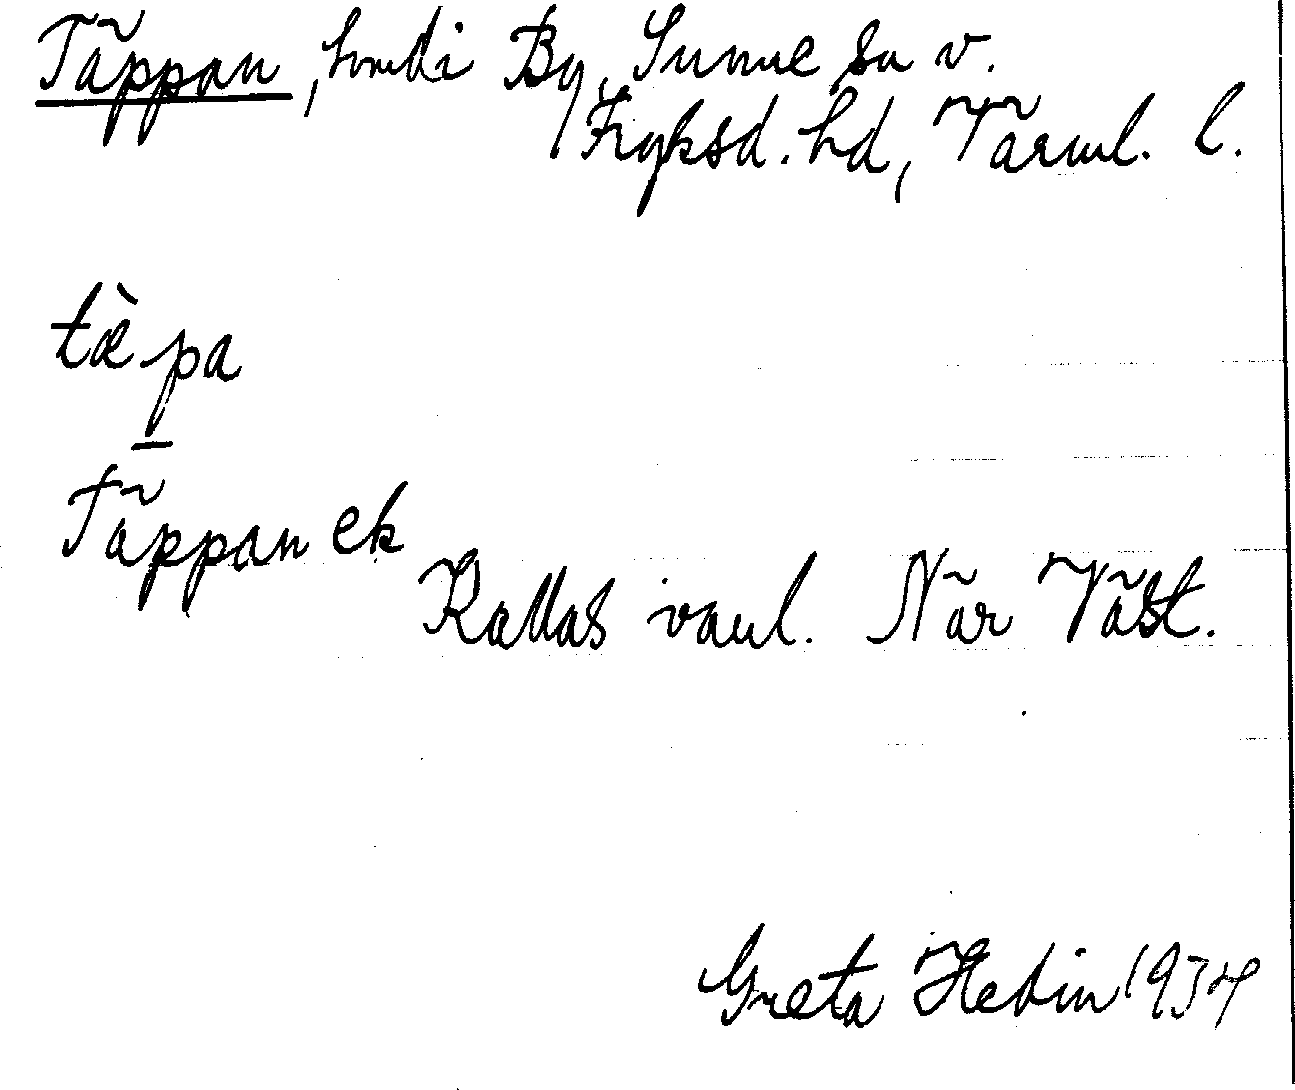 Täppan, hmdi By, Sunne sn v.
Fryksd. hd, Värml. l.
tæ̀pa
Täppan ek
Kallas vanl. När Väst.
Greta Hedin 1934